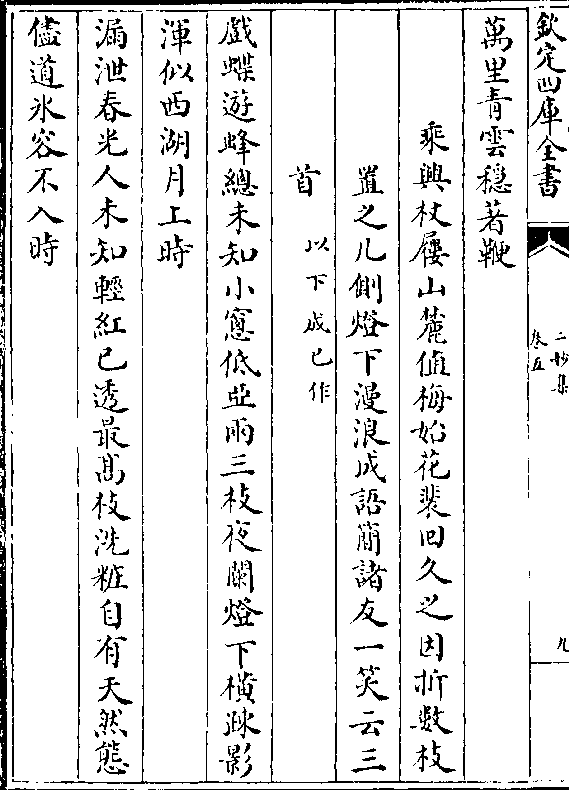 欽定四庫全書
二妙集
卷五
九
萬里青雲穩著鞭
乘興杖屨山麓値梅始花裴回久之因折數枝
置之几側燈下漫浪成語簡諸友一笑云三
首
以下成己作
戲蝶遊蜂總未知小窻低亞兩三枝夜闌燈下橫踈影
渾似西湖月上時
漏泄春光人未知輕紅已透最髙枝洗粧自有天然態
儘道氷容不入時